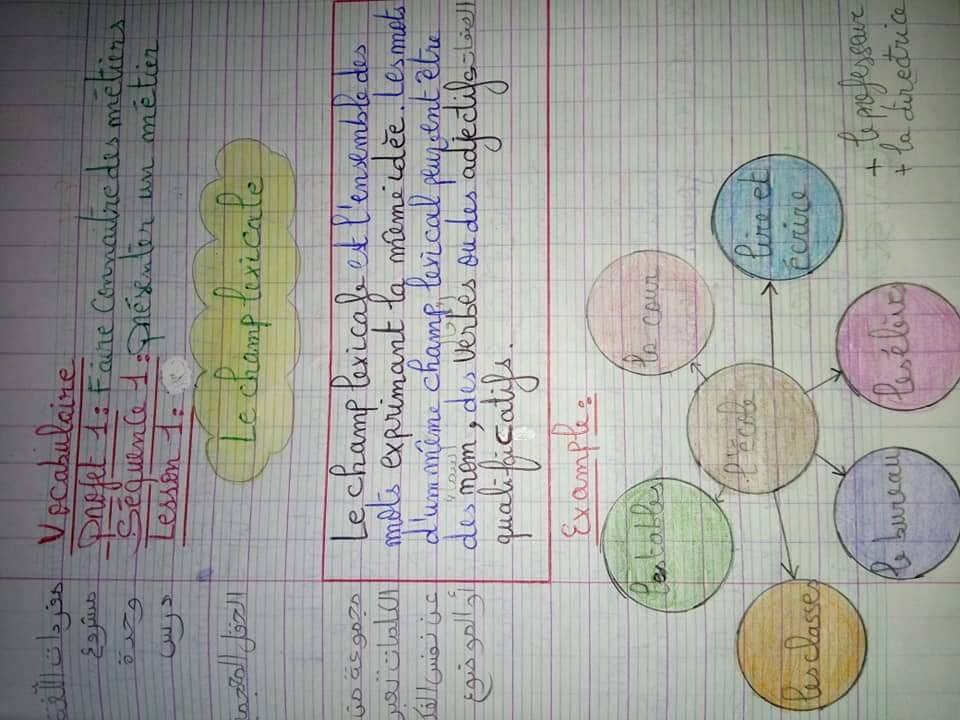 Vocabulaire
Projet 1: Faire Connaitre des métiers
Séquence 1: présenter un métier
Lesson 1:
Le champ lexicale
Le champ lexicale est l'ensemble des
mots exprimant la même idée. Les mots
d'un même champ lexical peuvent être
des nom, des verbes ou des adjectifs
qualificatifs.
Example:
l'école
les tables
la cour
lire et
écrire
les élèves
le bureau
les classes
+ le professeur
+ la directrice
مفردات اللغة
مشروع
وحدة
درس
مجموعة من
الكلمات تعبر
عن نفس
أو الموضوع